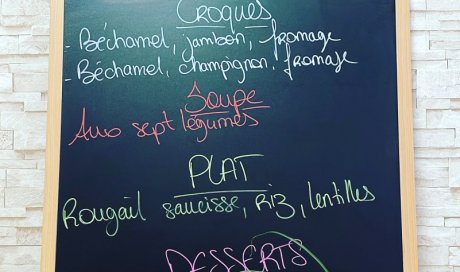 Croques
- Béchamel, jambon, fromage
- Béchamel, champignon, fromage
Soupe
Aux sept légumes
PLAT
Rougail saucisse, Riz, lentilles
DESSERTS